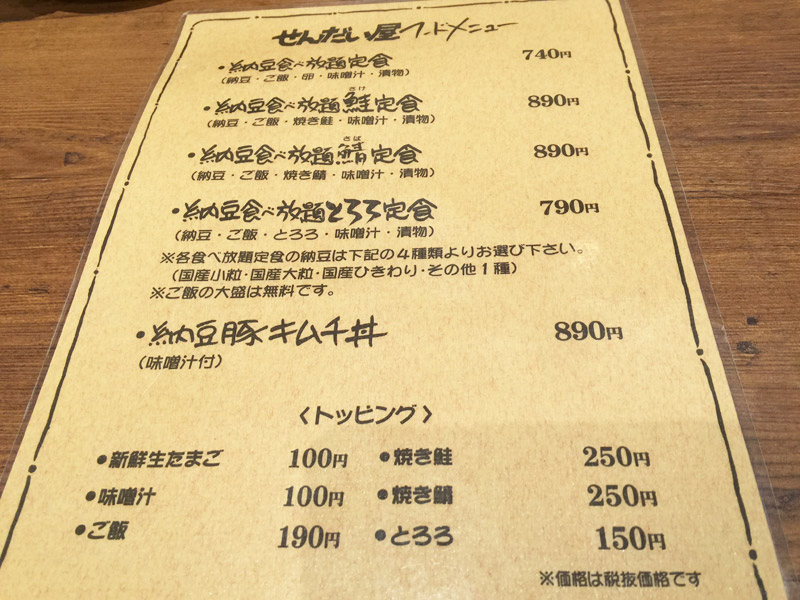 せんだい屋フードメニュー
・納豆食べ放題定食 740円
(納豆・ご飯・卵・味噌汁・漬物)
さけ
・納豆食べ放題鮭定食 890円
(納豆・ご飯・焼き鮭・味噌汁・漬物)
さば
・納豆食べ放題鯖定食 890円
(納豆・ご飯・焼き鯖・味噌汁・漬物)
・納豆食べ放題とろろ定食 790円
(納豆・ご飯・とろろ・味噌汁・漬物)
※各食べ放題定食の納豆は下記の4種類よりお選び下さい。
(国産小粒・国産大粒・国産ひきわり・その他1種)
※ご飯の大盛は無料です。
・納豆豚キムチ丼 890円
(味噌汁付)
〈トッピング〉
●新鮮生たまご 100円 ●焼き鮭 250円
●味噌汁 100円 ●焼き鯖 250円
●ご飯 190円 ●とろろ 150円
※価格は税抜価格です